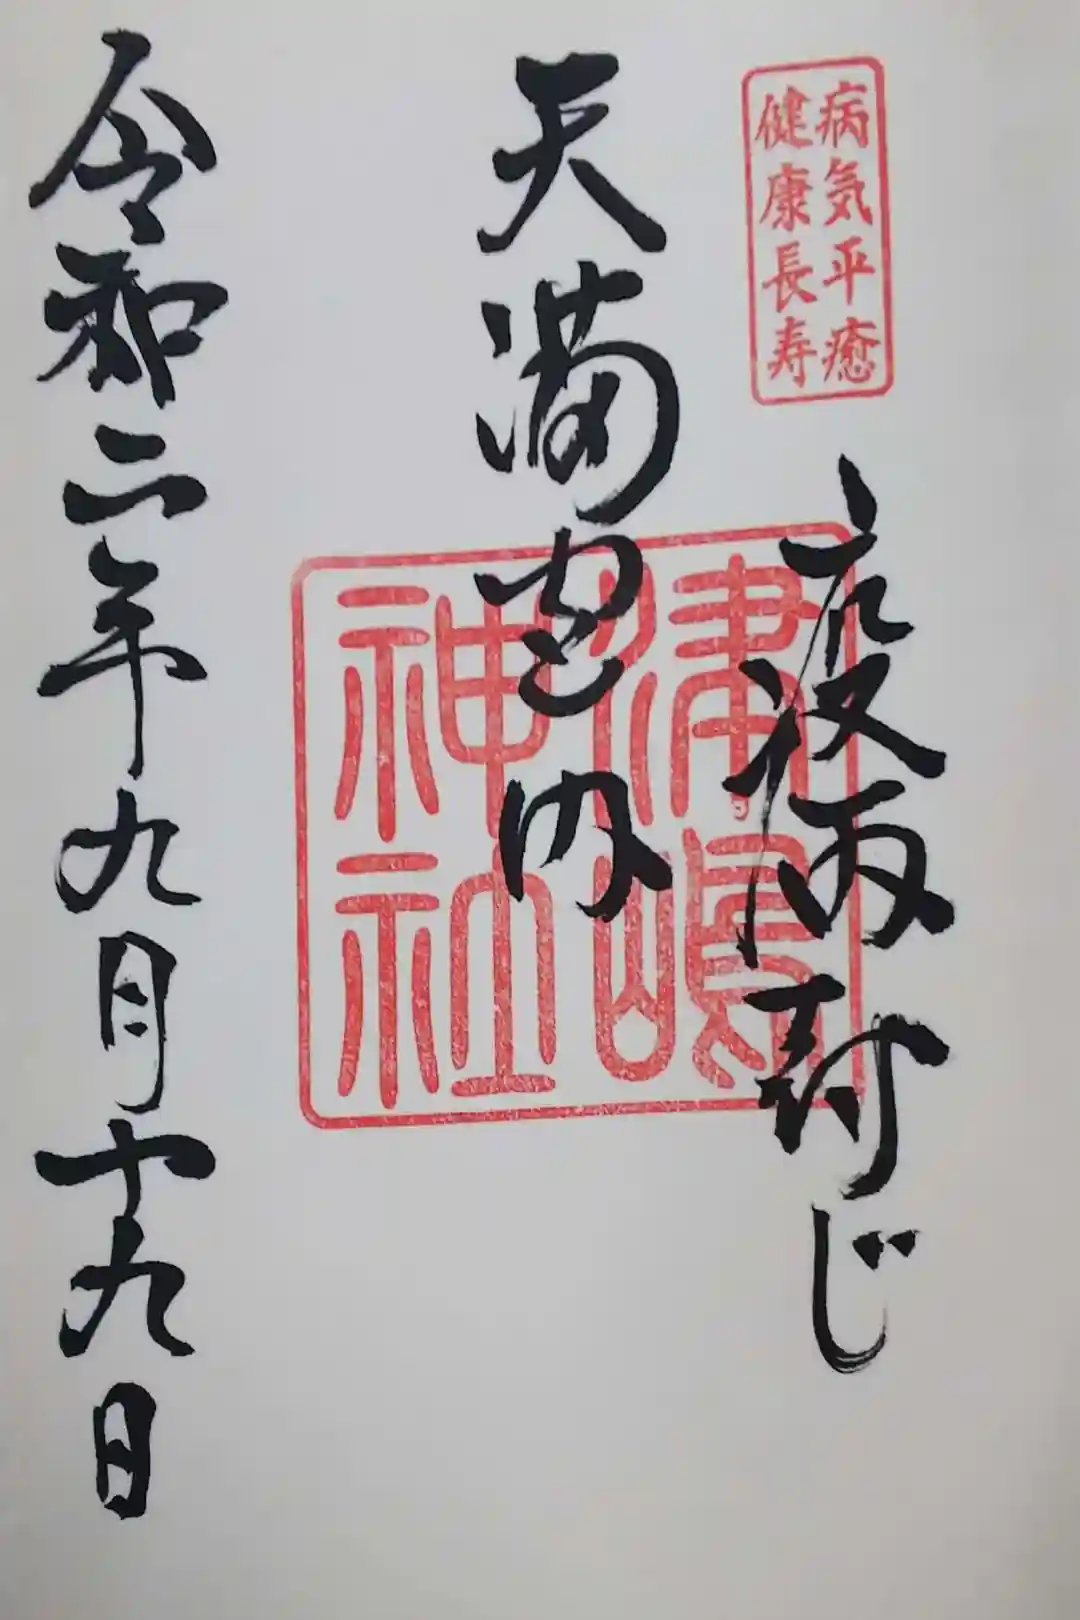 病気平癒
健康長寿
疫病封じ
天満宮内
津嶋
神社
令和二年九月十九日